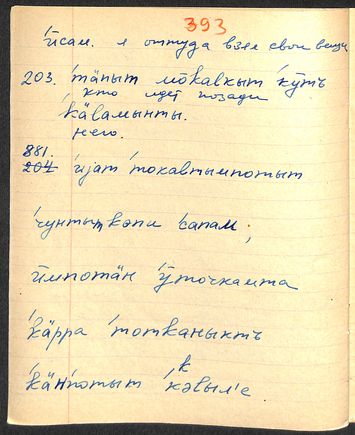 393
и̇̄сам. я оттуда взял свои вещи
203. 'тӓпыт мо̄̇калкыт 'кӯтъ
кто идет позади
'кӓламынты.
него.
881.
204 'ијат 'токалтымпотыт
'чунтытͅкәпи 'сапам,
ӣмпотӓн 'ӯточкамта
'кӓрра 'тотканыктъ
к
'кӓнпотыт 'кәвыл'е